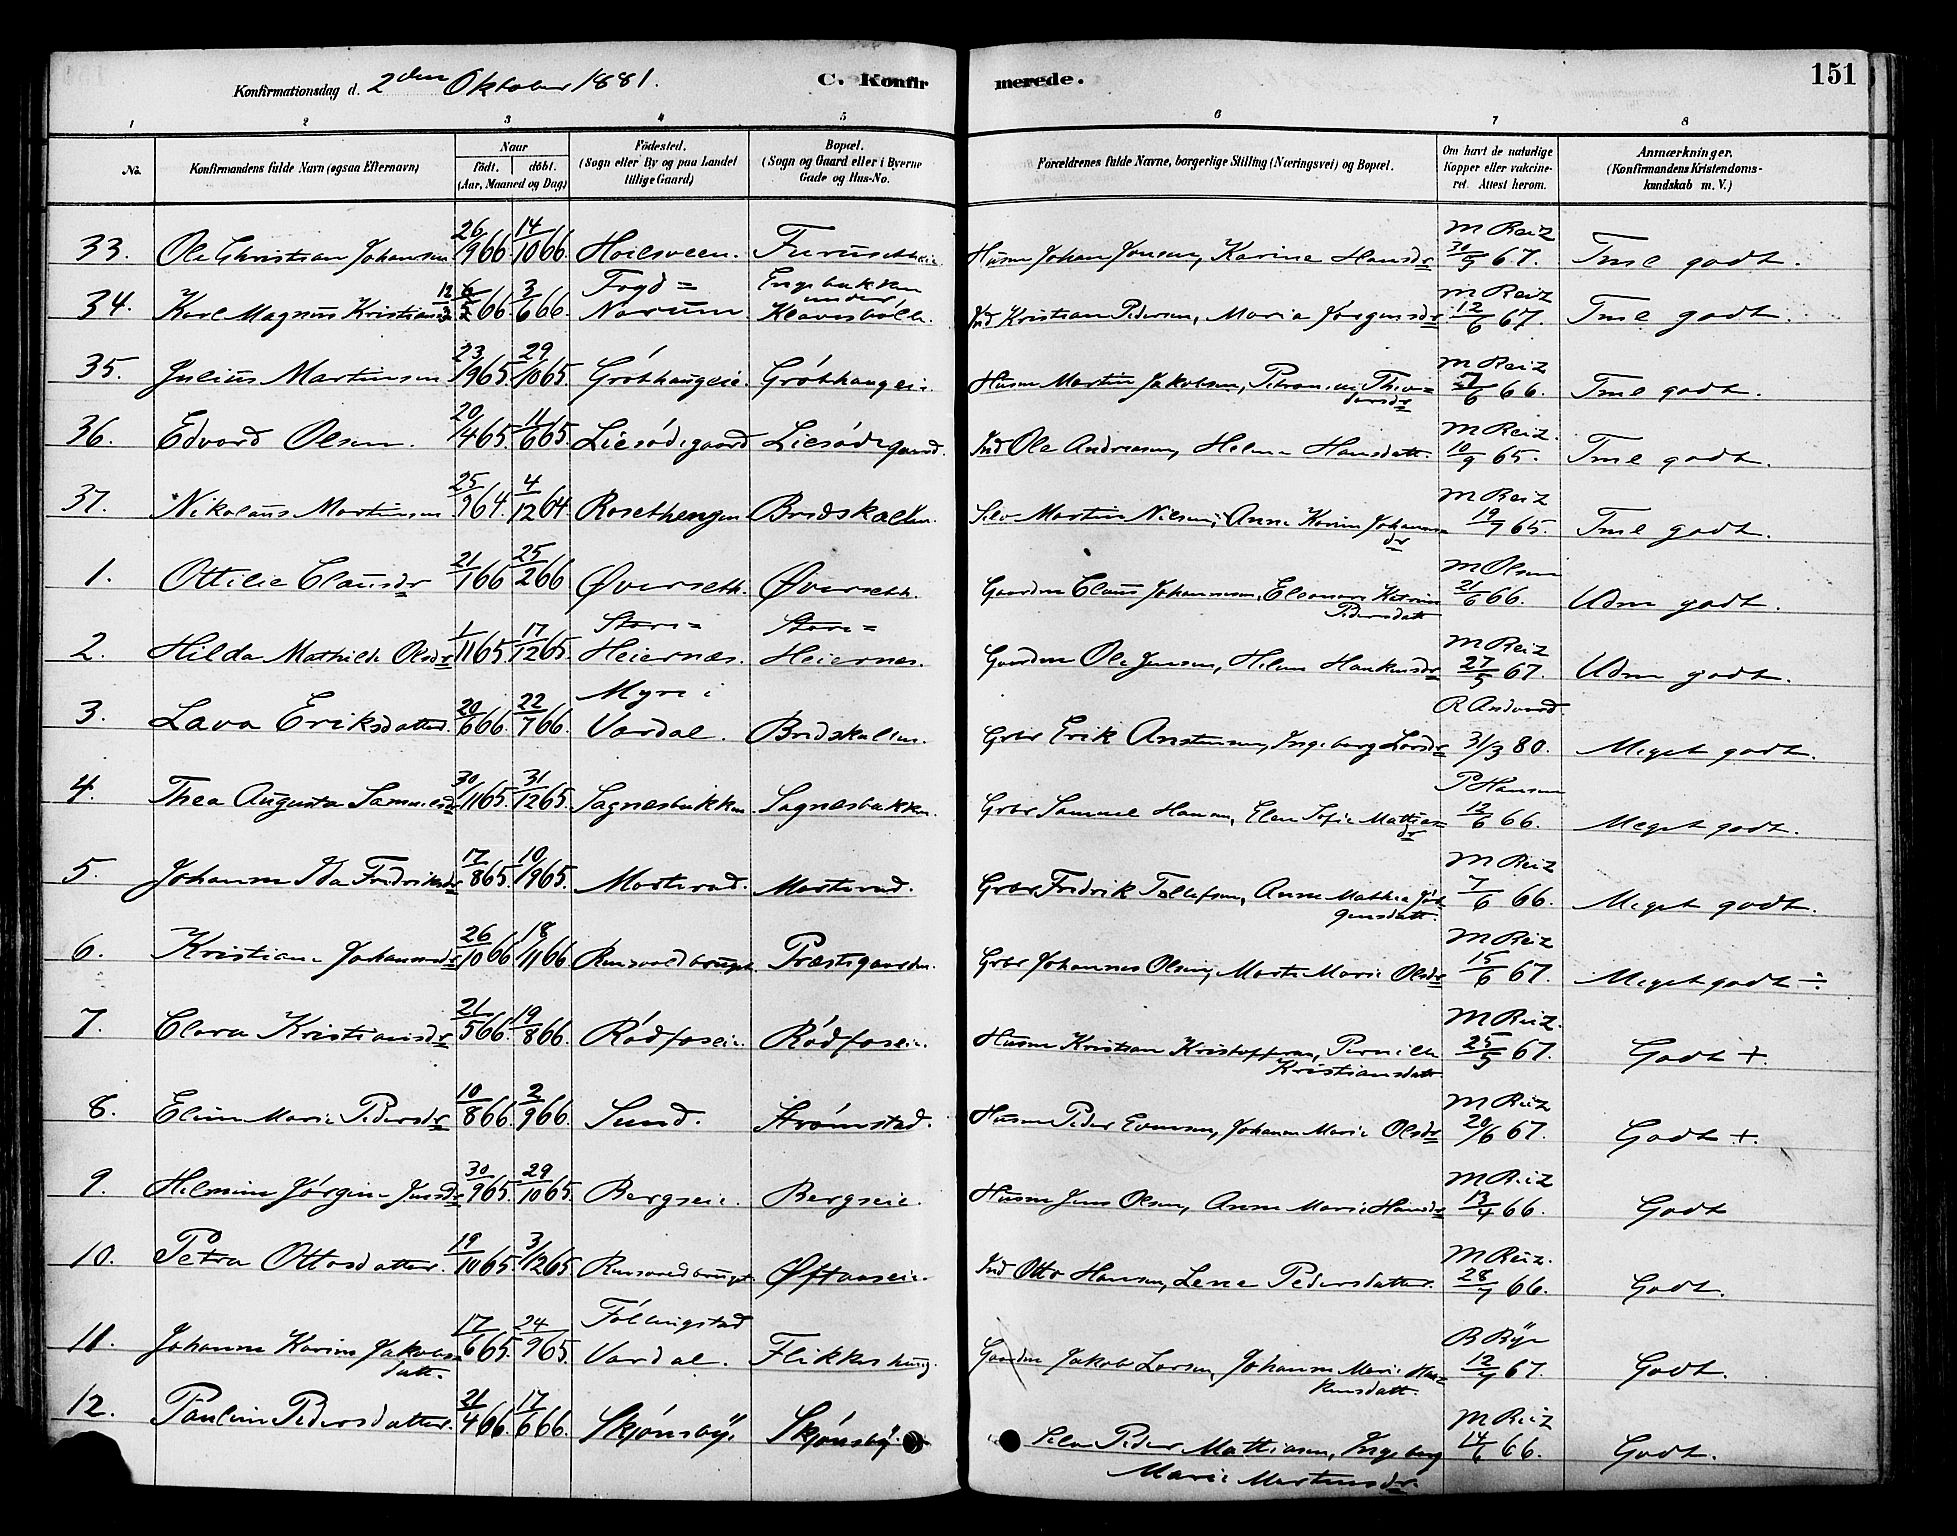 Konfirmationsdag d. 2den Oktober 1881.
C. Konfir
merede.
151
1 2 3 4 5 6 7 8
No.
Konfirmandens fulde Navn (ogsaa Efternavn)
Naar
født. døbt.
(Aar, Maaned og Dag)
Födested.
(Sogn eller By og paa Landet
tillige Gaard)
Bopæl.
(Sogn og Gaard eller i Byerne
Gade og Hus-No.
Forældrenes fulde Navne, borgerlige Stilling (Næringsvei) og Bopæl.
Om havt de naturlige
Kopper eller vakcine-
ret. Attest herom.
Anmærkninger.
(Konfirmandens Kristendoms-
kundskab m. V.)
33. Ole Christian Johansen 26/9 66 14/10 66 Hoilsveen. Husm Johan Jonsen, Karine Hansdr M Reiz 30/5 67. Tml godt.
34. Karl Magnus Kristians 66 3/6 66 Fogd=
Narum Engebakken
under
Kristian Pedersen, Maria Jørgensdr M Reiz 12/6 67. Tml godt.
35. Julius Martinsen 23/9 65 29/10 65 Gróthaugeie. Gróthaugeie. Husm Martin Jakobsen, M Reiz 66. Tml godt.
36. Edvard Olsen. 20/4 65 11/6 65. Liesødegaard Liesødegaard. Ind Ole Andreasen, Helene Hansdatt. M Reiz. 10/9 65. Tml godt.
37. Nikolaus Martinsen 25/9 64. 4/12 64 Rosethengen Brødskallen. Selv Martin Nilsen, Anne Karine Johannes=
dr M Reiz 19/7 65. Tml godt.
1. Ottilie Clausdr 21/1 66 25/2 66 Øverseth. Øverseth. Gaardm Claus Johannesen, Eleonore Katrine
Pedersdatt M Olsen 21/6 66. Udm godt.
2. Hilda Mathilde Olsdr 1/11 65. 17/12 65. Store=
Heiernæs. Store=
Heiernes. Gaardm Ole Jensen, Helene Haakensdr M Reiz 27/5 67. Udm godt.
3. Lava Eriksdatter. 20/6 66. 22/7 66 Myre i
Vardal. Brødskallen. Grbr Erik Anstensen, Ingeborg Larsdr 31/3 80. Meget godt.
4. Thea Augusta Samuelsdr 30/11 65. 31/12 65. Sagnesbakken Sognesbakken. Grbr Samuel Hansen, Elen Sofie Mathias=
dr P Hansen 12/6 66. Meget godt.
5. Johanne Ida Fredriksdr 17/8 65. 10/9 65. Mosterud. Mosterud. Grbr Fredrik Tollefsen, Anne Mathea Jör
gensdatt. M Reiz 7/6 66. Meget godt.
6. Kristiane Johannesdr 26/10 66 18/11 66 Præstegaarden. Grbr Johannes Olsen, Marte Marie Olsdr M Reiz 15/6 67. Meget godt ÷.
7. Clara Kristiansdr 21/5 66. 19/8 66. Rödfoseie. Rödfoseie. Husm Kristian Kristoffersen, Pernille
Kristiansdatt M Reiz. 25/5 67. Godt +.
8. Eline Marie Pedersdr 10/8 66. 2/9 66. Sund. Strömstad. Husm Peder Evensen, Johanne Marie Olsdr M Reiz 20/6 67. Godt +.
9. Helmine Jörgine Jensdr 30/9 65. 29/10 65. Bergseie. Bergseie. Husm Jens Olsen, Anne Marie Hansdr M Reiz 13/4 66. Godt
10. Petra Ottosdatter. 19/10 65. 3/12 65. Øftaaseie. Ind Otto Hansen, Lene Pedersdatter. M Reiz. 28/7 66. Godt.
11. Johanne Karine Jakobs=
datt. 17/6 65. 24/9 65. Vardal. Flikkeshaug. Gaardm Jakob Larsen, Johanne Marie Haa=
kensdatt. 12/7 67. Godt.
12. Pauline Pedersdatter. 21/4 66. 17/6 66. Skjønsby. Skjønsby. Selv Peder Mathiasen, Ingeborg
Marie Martinsdr. M Reiz 14/6 66. Godt.